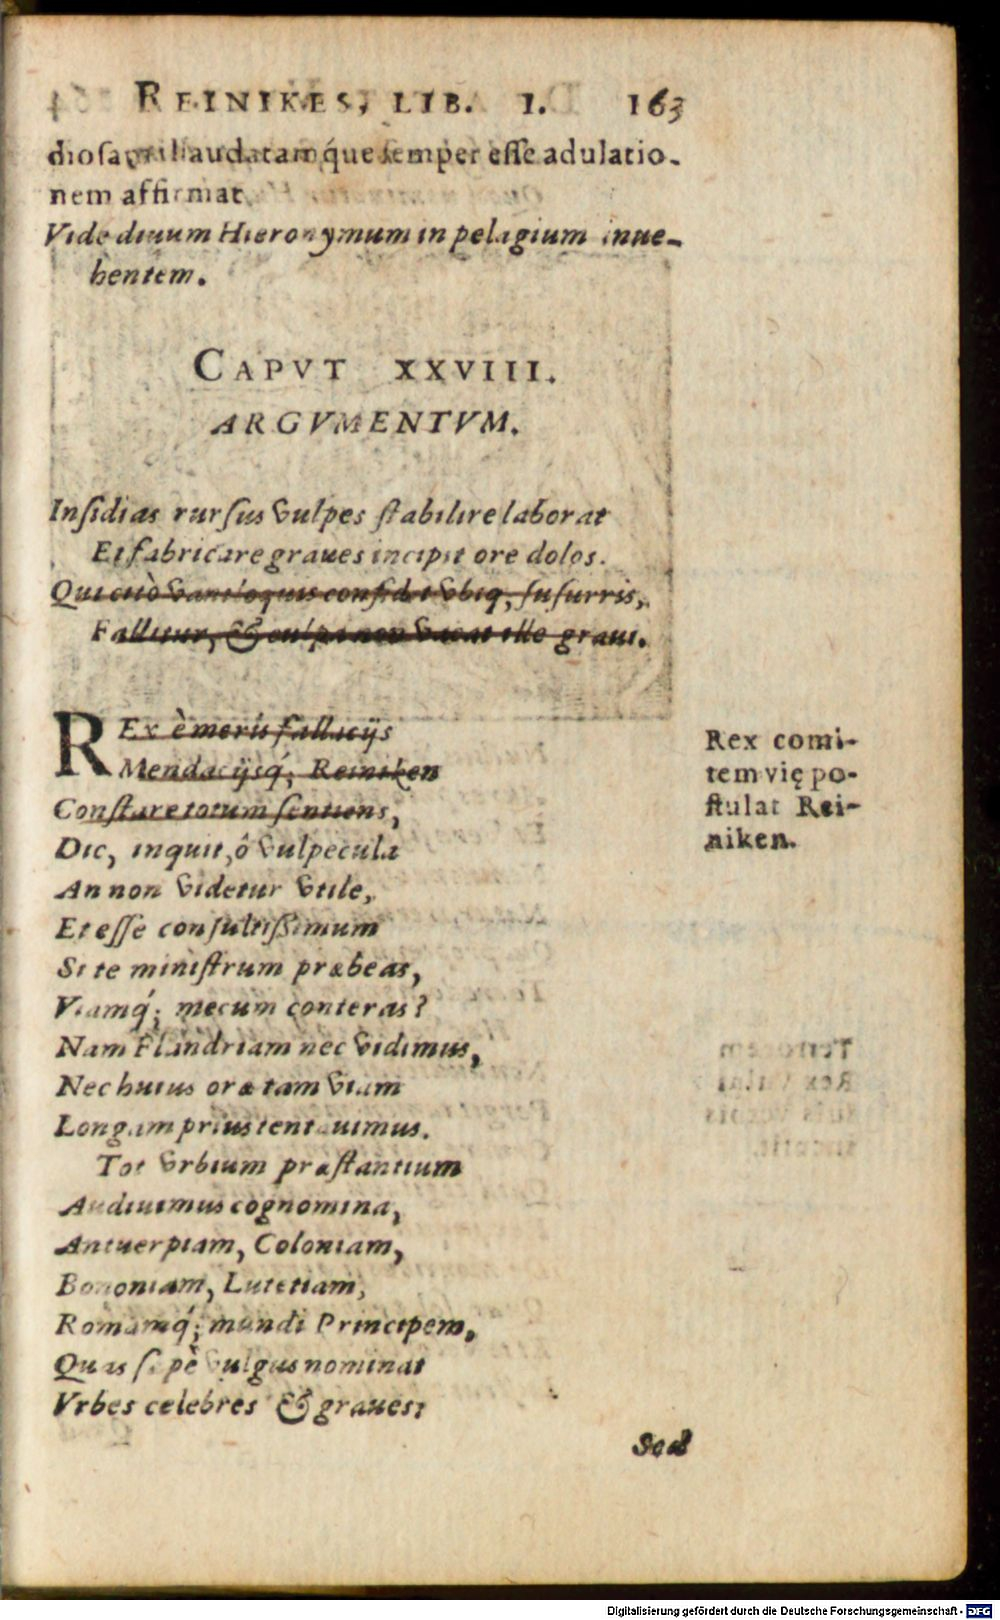 REINIKES, LIB. I. 163
diosa, vel laudatam´que semper esse adulatio-
nem affirmat.
Vide diuum Hieronymum in pelagium inue-
hentem.
CAPVT XXVIII.
ARGVMENTVM.
Insidias rursus vulpes stabilire laborat
Et fabricare graues incipit ore dolos.
Qui citò vaniloquis confidit vbiq; susurris,
Fallitur, & culpa non vacat ille graui.
REx è meris fallacijs
Mendacijsq́; Reiniken
Constare totum sentiens,
Dic, inquit, ô vulpecula
An non videtur vtile,
Et esse consultißimum
Si te ministrum præbeas,
Viamq́; mecum conteras?
Nam Flandriam nec vidimus,
Nec huius oræ tam viam
Longam prius tentauimus.
Tot vrbium præstantium
Audiuimus cognomina,
Antuerpiam, Coloniam,
Bononiam, Lutetiam,
Romamq́; mundi Principem,
Quas sæpè vulgus nominat
Vrbes celebres & graues:
Sed
Rex comi-
tem vię po-
stulat Rei-
niken.
Digitalisierung gefördert durch die Deutsche Forschungsgemeinschaft - DFG